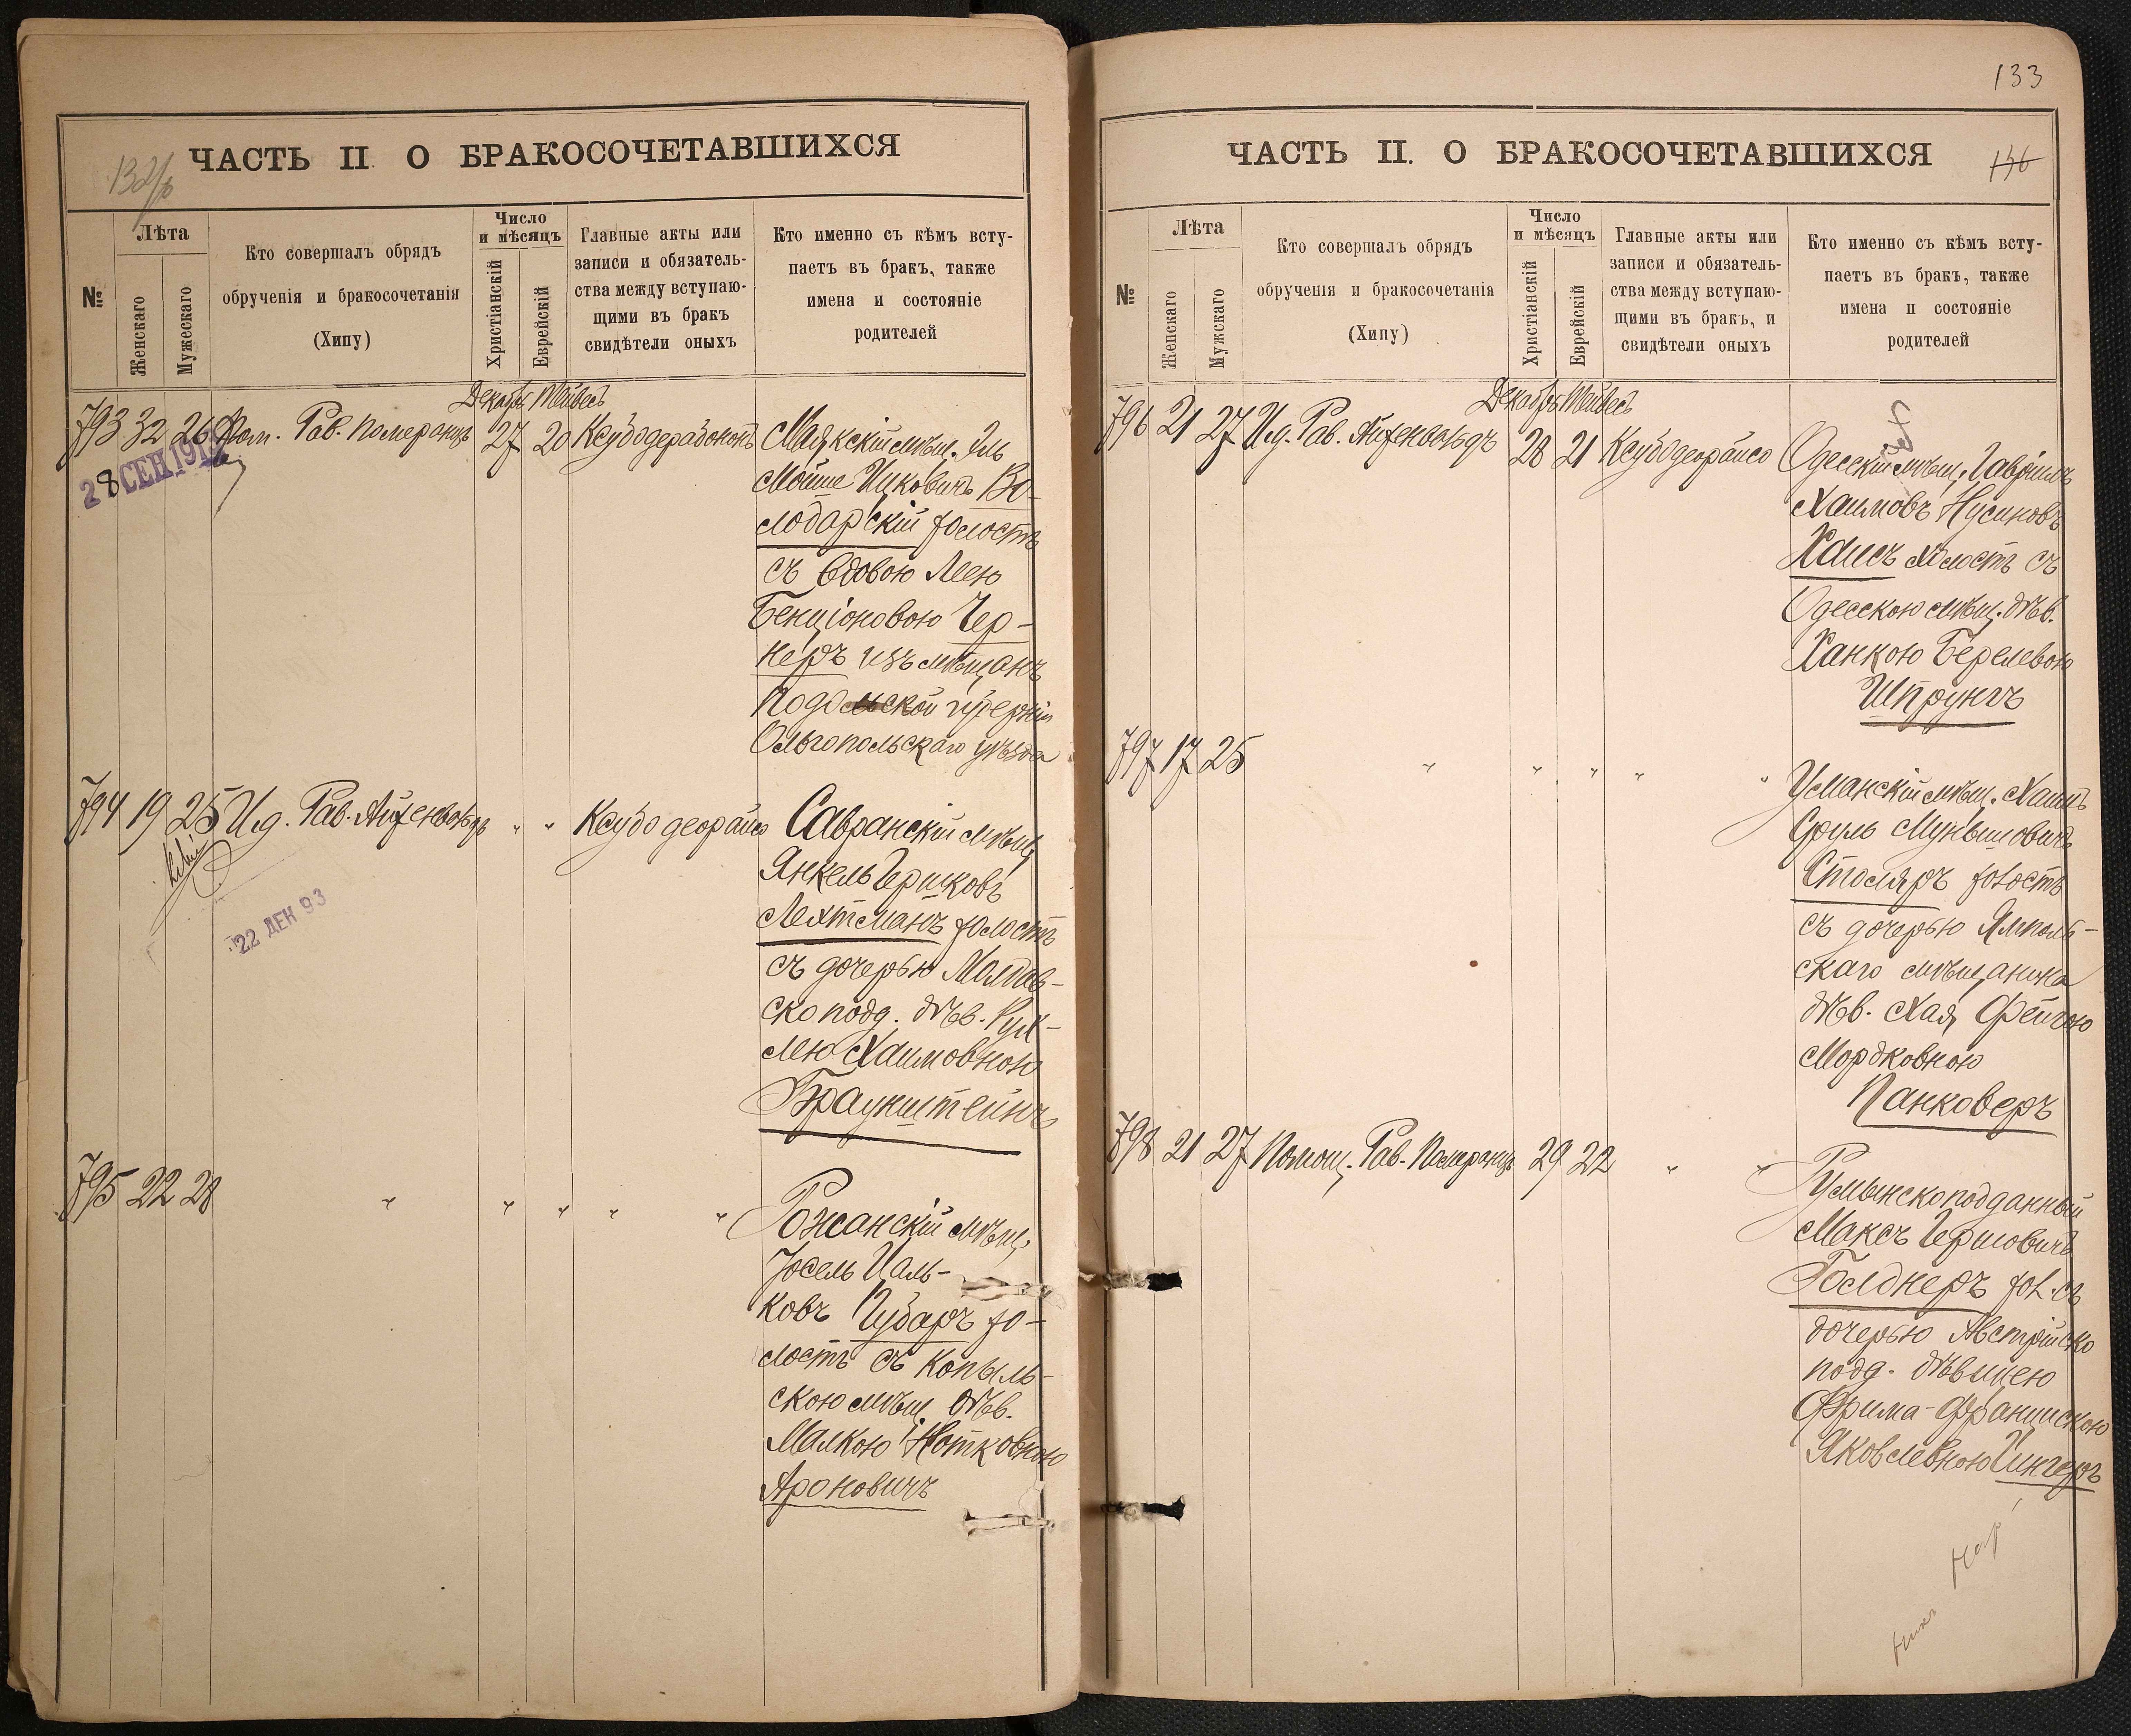 132/б
ЧАСТЬ II О БРАКОСОЧЕТАВШИХСЯ
№
Лѣта
Женскаго
Мужескаго
Кто совершалъ обрядъ
обрученія и бракосочетанія
(Хипу)
Число
и мѣсяцъ
Христіанскій
Еврейскій
Главные акты или
записи и обязатель-
ства между вступаю-
щими въ бракъ
свидѣтели оныхъ
Кто именно съ кѣмъ всту-
паетъ въ бракъ, также
имена и состояніе
родителей
Декабрь Тейвесъ
793 32 26 Пом. Рав. Померанцъ 27 20 Ксубо Маякскій мѣщ. Эль
Мойше Ицковичъ Во-
лодарскій холостъ
съ вдовою Леею
Бенціоновою Чер-
неръ изъ мѣщанъ
Подольской губерніи
Ольгопольскаго уѣзда
28 СЕН 191
794 19 25 И.д. Рав. Айзенвольдъ " " Ксубо деорайсо Савранскій мѣщ.
Янкель Гершковъ
Лехтманъ холостъ
съ дочерью Молдав-
ско подд. дѣв. Рух-
лею Хаимовною
Браунштейнъ
22 ДЕН 93
795 22 28 " " " " " Рожанскій мѣщ.
Іосель Цаль-
ковъ Чубаръ хо-
лостъ съ Копыль-
скою мѣщ. дѣв.
Малкою Нотковною
Ароновичъ
133
ЧАСТЬ II. О БРАКОСОЧЕТАВШИХСЯ
136
№
Лѣта
Женскаго
Мужскаго
Кто совершалъ обрядъ
обрученія и бракосочетанія
(Хипу)
Число
и мѣсяцъ
Христіанскій
Еврейскій
Главные акты или
записи и обязатель-
ства между вступаю-
щими въ бракъ, и
свидѣтели оныхъ
Кто именно съ кѣмъ всту-
паетъ въ бракъ, также
имена и состояніе
родителей
Декабрь Тейвесъ
796 21 27 И.д. Рав. Айзенвольдъ 28 21 Ксубо деорайсо Одесскій мѣщ. Гавріилъ
Хаимовъ Нусиновъ
Хаисъ холостъ съ
Одесскою мѣщ. дѣв.
Ханкою Берелевою
Шпрунгъ
797 17 25 " " " " " Уманскій мѣщ. Хаимъ
Сруль Мунышовичъ
Столяръ холостъ
съ дочерью Ямполь-
скаго мѣщанина
дѣв. Хая Фейгою
Мордковною
Панковеръ
798 21 27 Помощ. Рав. Померанцъ 29 22 " " Румынскоподданный
Максъ Гершовичъ
Голднеръ хол. съ
дочерью Австрійско
подд. дѣвицею
Фрима-Францискою
Яковлевною Сингеръ